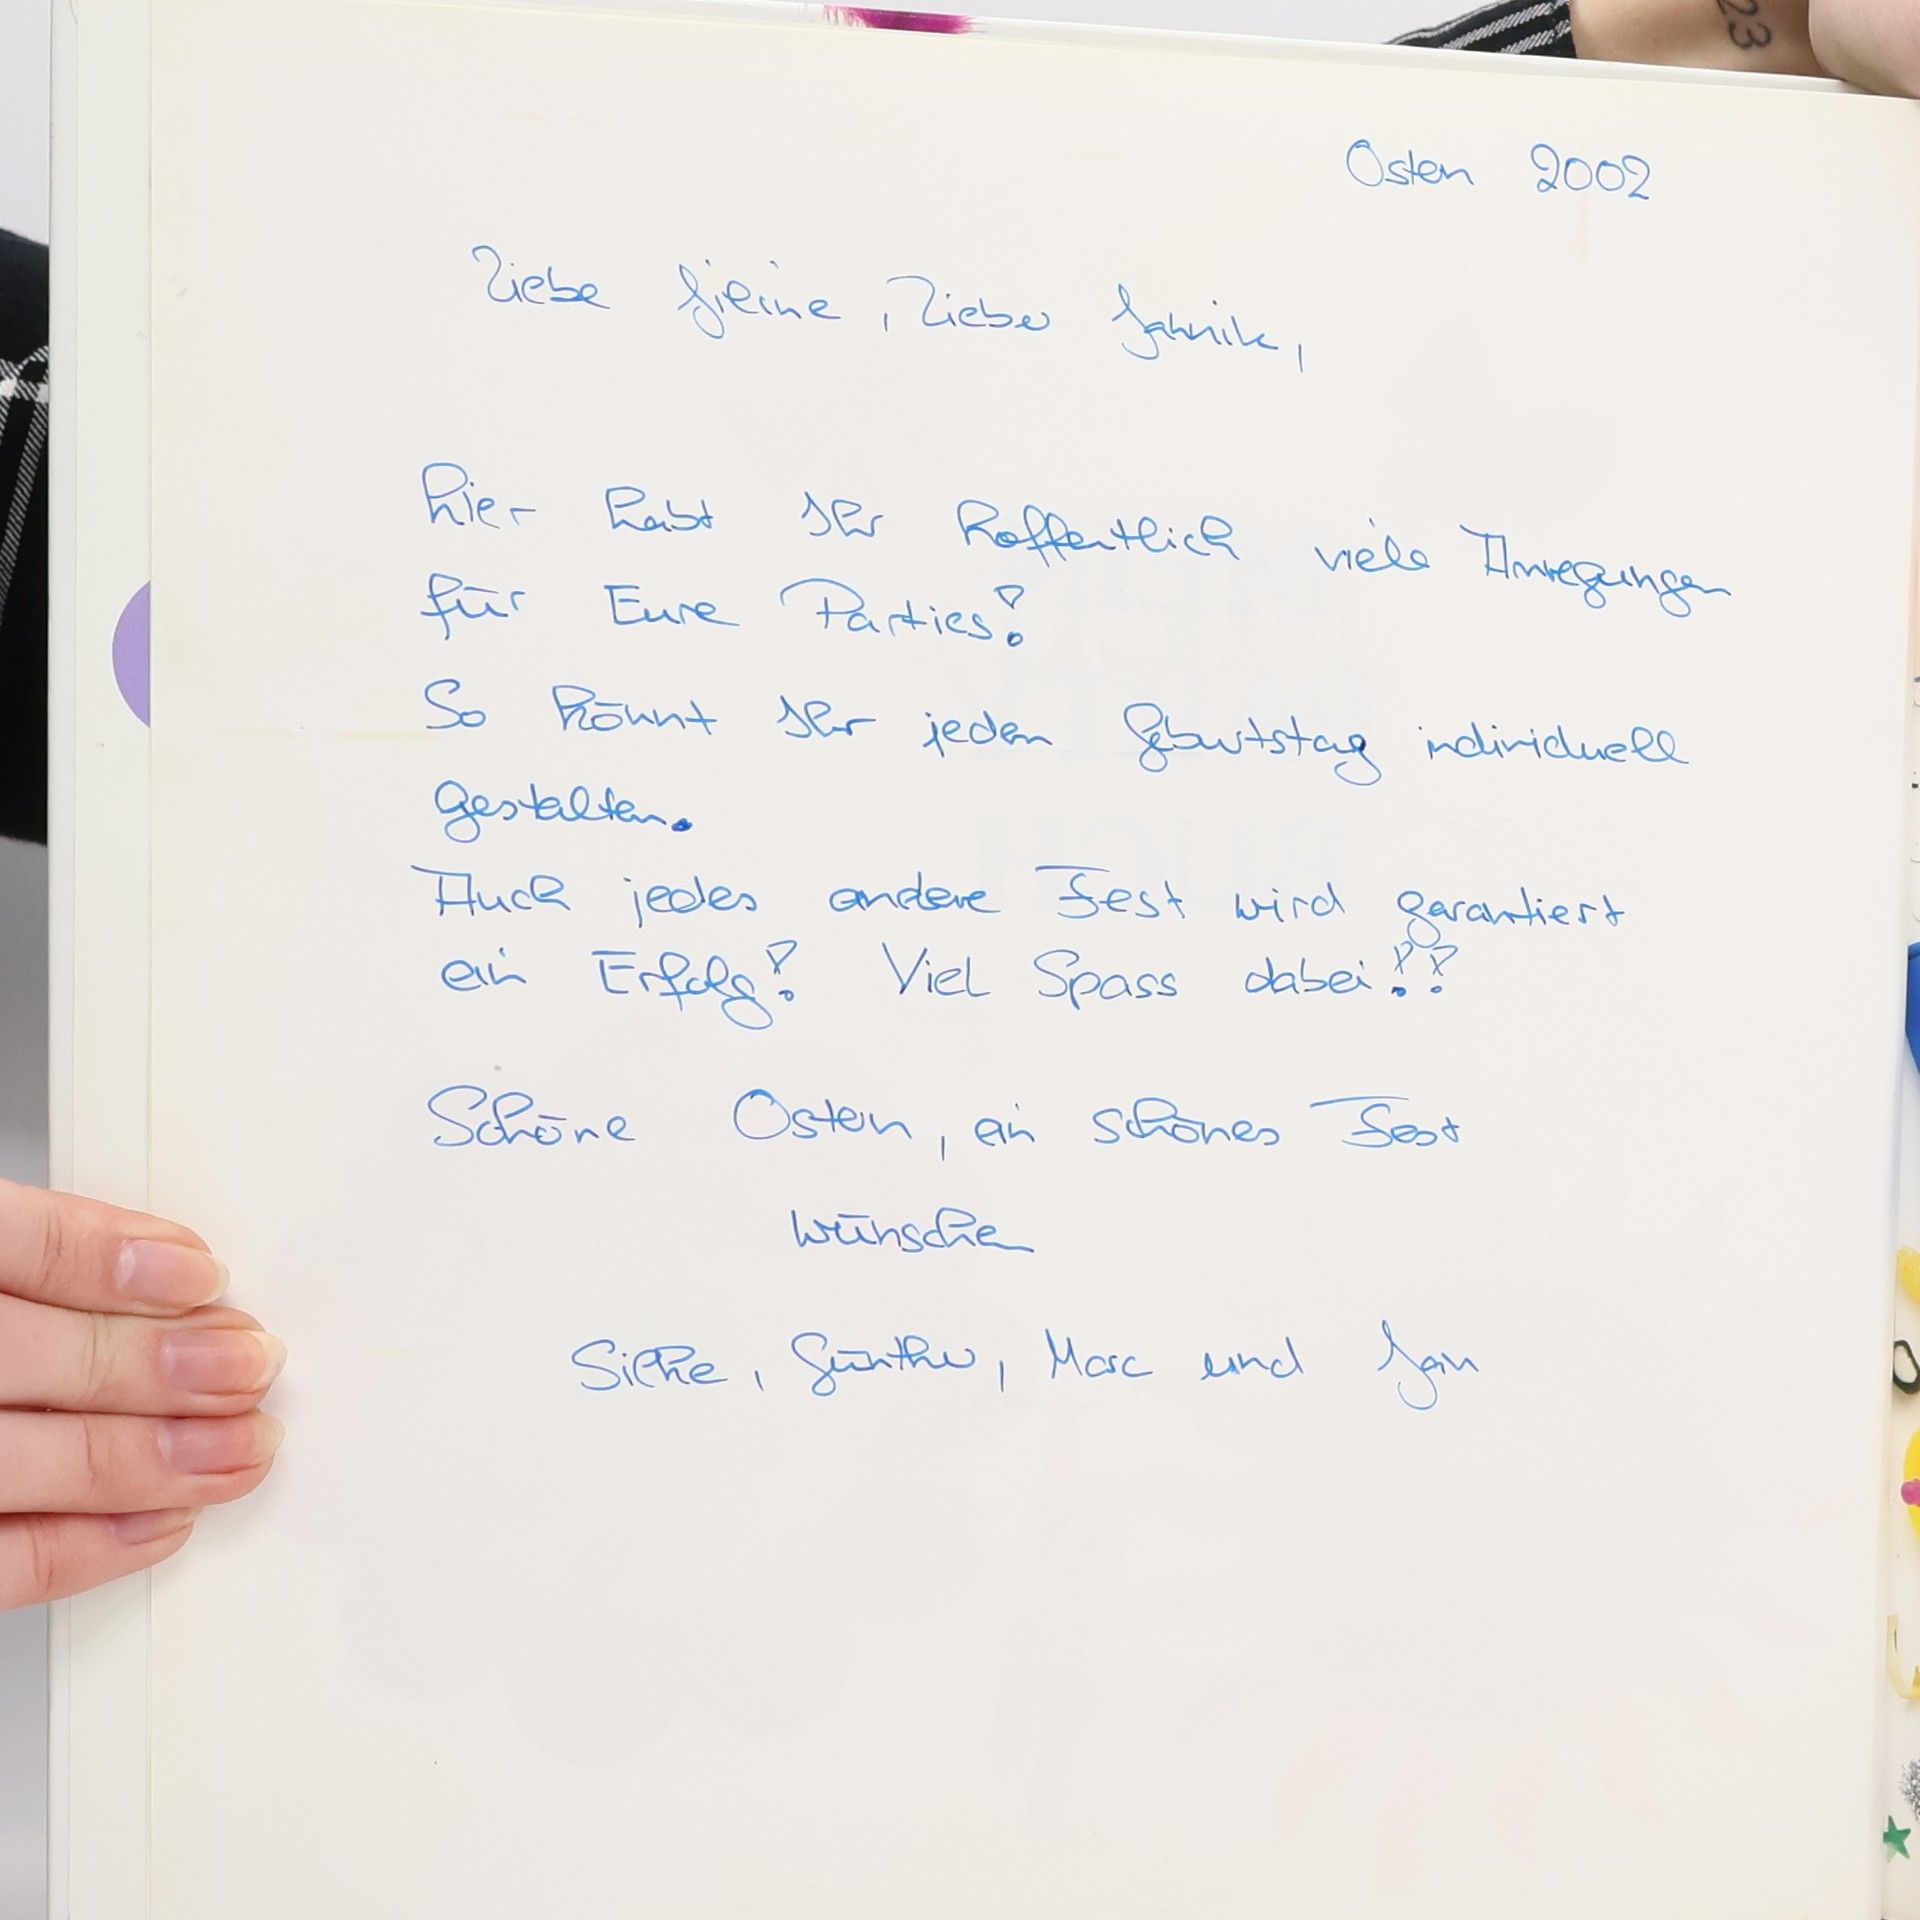 23
Ostern 2002
Liebe Jieine, Lieber Jannik,
hier habt Ihr hoffentlich viele Anregungen
für Eure Parties!
So könnt Ihr jeden Geburtstag individuell
gestalten.
Auch jedes andere Fest wird garantiert
ein Erfolg! Viel Spass dabei!!
Schöne Ostern, ein schönes Fest
wünschen
Silke, Günther, Marc und Jan